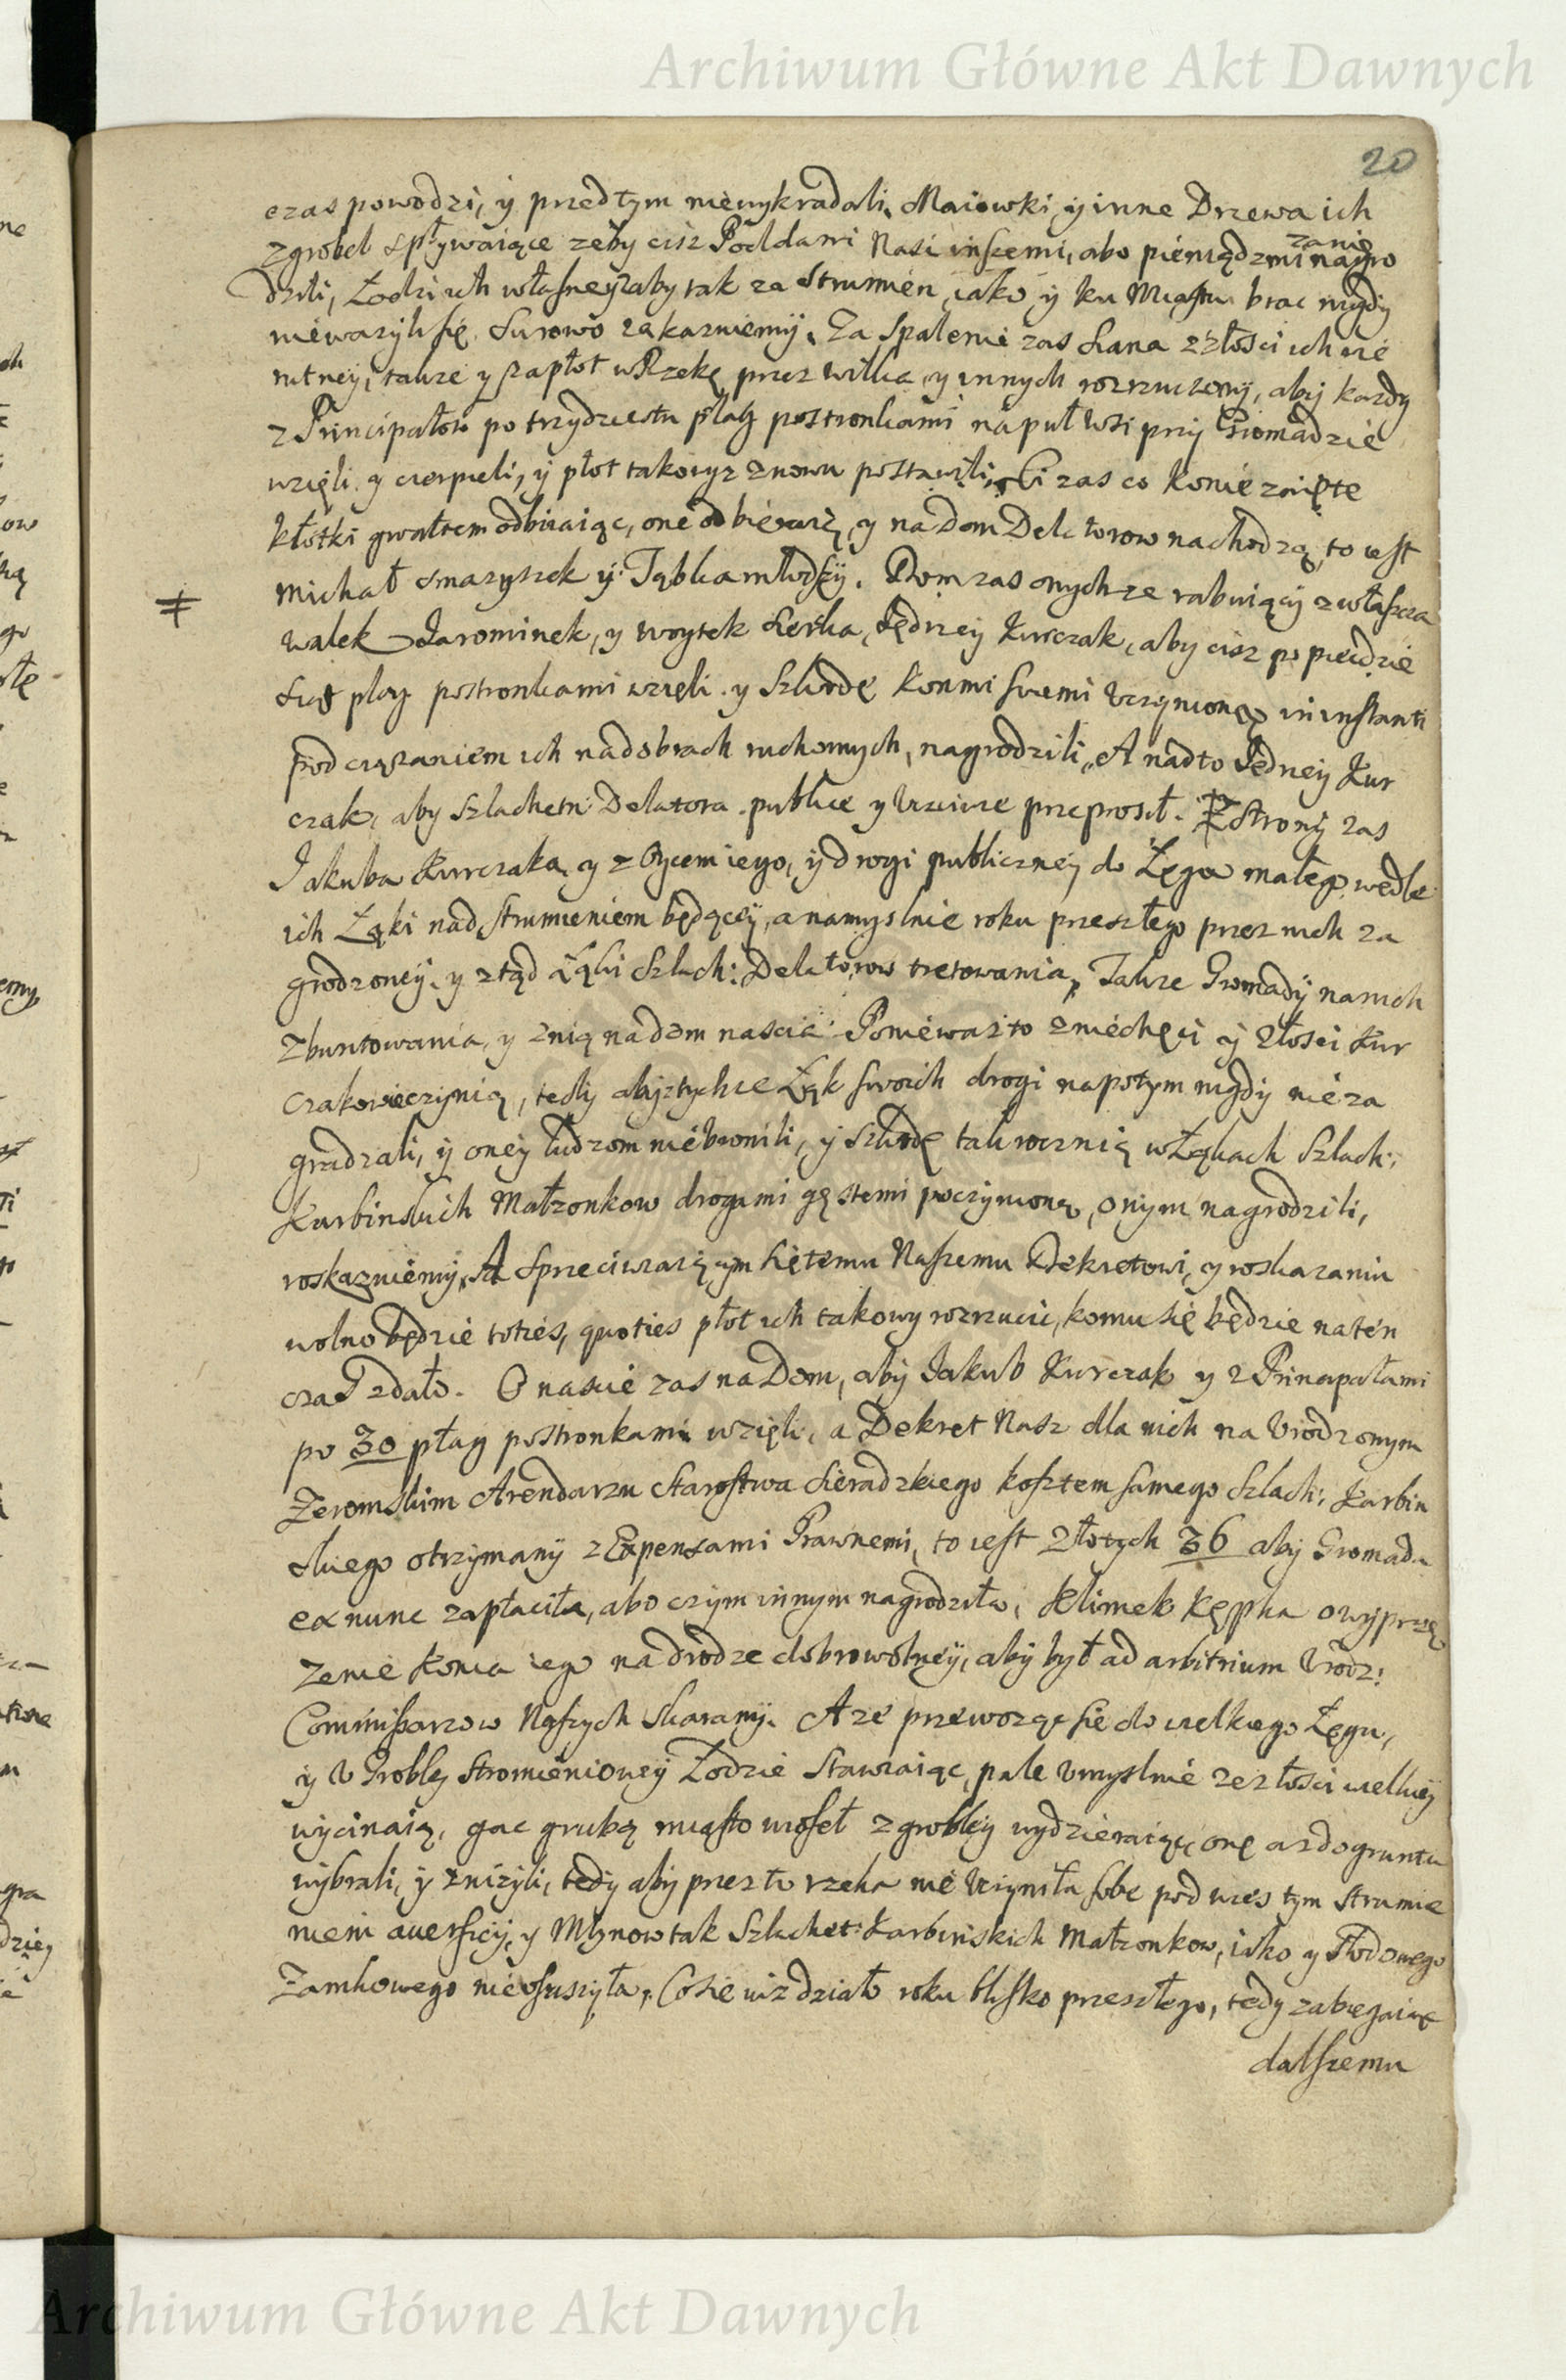 Archiwum Główne Akt Dawnych
20
czas powodzi, y przedtym niewykradali, Maiowki, y inne Drzewa ich
z grobel spływaiące zeby cisz Poddani Nasi inszemi, abo pieniądzmi zanie nagro
dzili, Łodzi ich własney zaby tak za Strumien, iako y ku Miastu brac nigdy
niewazyli się. Surowo zakazuiemy. Za Spalenie zas Siana z złości ich
rutney, takze y za płot w Rzekę przez Wilka, y innych rozrzucony, aby kazdy
z Principałow po trzydziestu plag postronkami napuł Wsi przy Gromadzie
wzięli y cierpieli, y płot takowyz znowu postawili, Ci zas co Konie zaięte
kłotki gwałtem odbiraiąc, one odbieraią, y na Dom Delatorow nachodzą, to iest
Michał Smazyszek y Jąbka młodszy. Dom zas onychze rabuiący zwłaszcza
≠
Walek Jarominek, y Woytek Serha, Jędrzey Kurczak, aby cisz po piędzie
siąt plag postronkami wzięli y Szkodę Konmi swemi Uczynioną in instanti
pod ciązaniem ich na dobrach ruchomych, nagrodzili, A nadto Jędrzey Kur
czak, aby Szlachetn: Delatora publice y Uczciwie przeprosił. Z Strony zas
Jakuba Kurczaka, y z Oycem iego, y drogi publiczney do Łęga małego, wedle
ich Łąki nad Strumieniem będącey, a namyslnie roku przeszłego przez nich za
grodzoney, y ztąd Łąki Szlach: Delatorow tretowania, Takze Gromady na nich
zbuntowania, y z nią na dom nascia: Poniewasz to z niechęci y złości Kur
czakowie czynią, tedy aby z tychze Łąk swoich drogi napotym nigdy nie za
gradzali, y oney ludzom niebronili, y szkodę tak rocznią w Łąkach Szlach:
Karbinskich Małzonkow drogami gęstemi poczynioną, onym nagrodzili,
roskazuiemy, A Sprzeciwiaiącym się temu Naszemu Dekretowi, y roskazaniu
wolno będzie toties, quoties płot ich takowy rozrzucic, komu się będzie na ten
czas zdało. O nascie zas na Dom, aby Jakub Kurczak y z Principałami
po 30 plag postronkami wzięli, a Dekret Nasz dla nich na Urodzonym
Zeromskim Arendarzu Starostwa Sieradzkiego kosztem samego Szlach: Karbin
skiego otrzymany z Expensami Prawnemi, to iest Złotych 36 aby Gromada
ex nunc zapłaciła, abo czym innym nagrodziła, Klimek Kępka o wyprzę
zenie Konia iego na drodze dobrowolney, aby był ad arbitrium Urodz:
Commissarzow Naszych skarany. A ze przewoząc się do wielkiego Łęgu,
y U Grobley Stromieniowey Łodzie Stawiaiąc, pale Umyslnie ze złości wielkiey
wycinaią, gac grubą miasto wioseł z grobley wydzieraiąc, onę asz do gruntu
wybrali, y znizyli, tedy aby przez to rzeka nie Uczyniła sobie pod wies tym Strumie
niem auersiey, y Młynow tak Szlachet: Karbinskich Małzonkow, iako y Słodowego
Zamkowego nieosuszyła, Co się iuz działo roku blisko przeszłego, tedy zabiegaiąc
dalszemu
Archiwum Główne Akt Dawnych